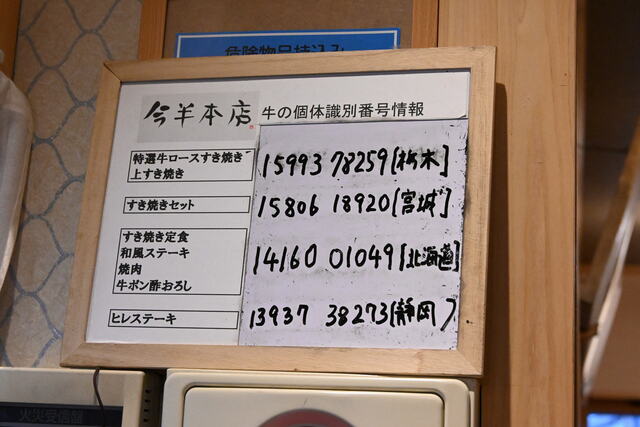 危険物品持込み
今半本店 牛の個体識別番号情報
特選牛ロースすき焼き
上すき焼き
15993 78259[栃木]
すき焼きセット
15806 18920[宮城]
すき焼き定食
和風ステーキ
焼肉
牛ポン酢おろし
14160 01049[北海道]
ヒレステーキ
13937 38273(静岡)
火災受信機